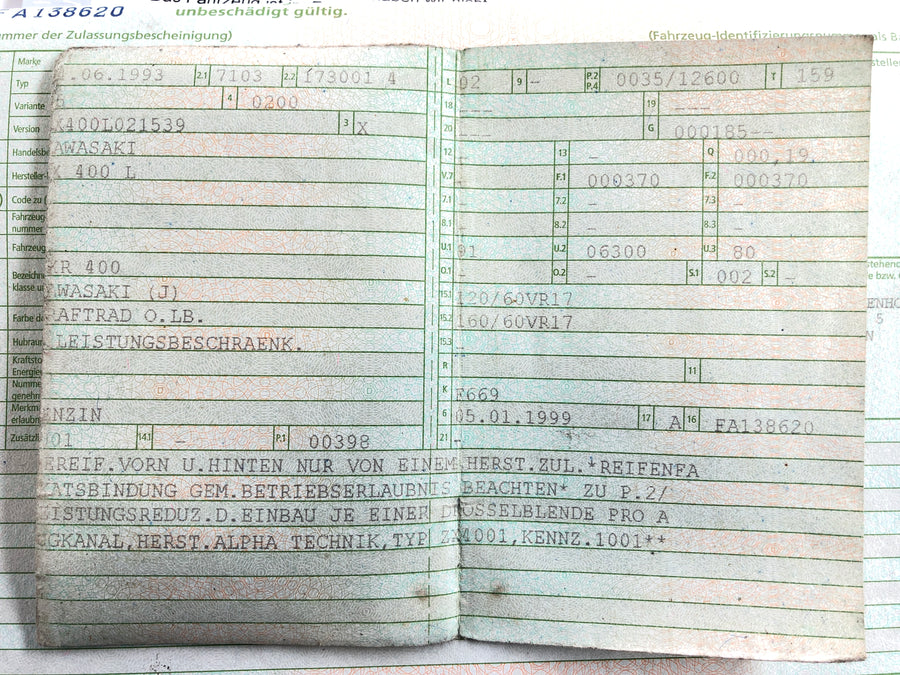 A138620
unbeschädigt gültig.
ummer der Zulassungsbescheinigung)
(Fahrzeug-Identifizierungsnummer
als Ba
Marke
Typ
Variante
Version
Handelsb
Hersteller-
Code zu
Fahrzeug
nummer
Fahrzeug
Bezeichn
klasse u
Farbe d
Hubrau
Kraftsto
Energie
Numme
genehm
Merkm
erlaubn
Zusätzli
.06.1993 2.1 7103 2.2 173001 4
4 0200
X400L021539 3 X
AWASAKI
X 400 L
XR 400
AWASAKI (J)
RAFTRAD O.LB.
LEISTUNGSBESCHRAENK.
ENZIN
01 14.1 - P.1 00398
L 02 9 - P.2 P.4 0035/12600 T 159
18 --- 19 ---
20 --- G 000185--
12 - 13 - Q 000,19
V.7 - F.1 000370 F.2 000370
7.1 - 7.2 - 7.3 -
8.1 - 8.2 - 8.3 -
U.1 91 U.2 06300 U.3 80
O.1 - O.2 - S.1 002 S.2 -
15.1 120/60VR17
15.2 160/60VR17
15.3
R 11
K F669
6 05.01.1999 17 A 16 FA138620
21 -
EREIF.VORN U.HINTEN NUR VON EINEM HERST.ZUL.*REIFENFA
KATSBINDUNG GEM.BETRIEBSERLAUBNIS BEACHTEN* ZU P.2/
EISTUNGSREDUZ.D.EINBAU JE EINER DROSSELBLENDE PRO A
GKANAL,HERST.ALPHA TECHNIK,TYP ZR4001,KENNZ.1001**